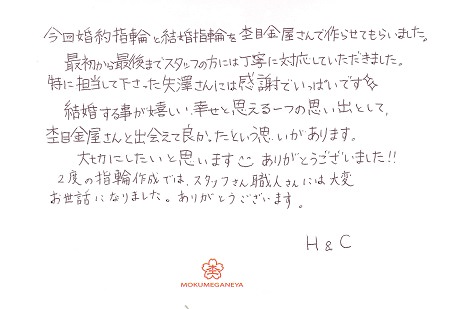 今回婚約指輪と結婚指輪を杢目金屋さんで作らせてもらいました。
最初から最後までスタッフの方には丁寧に対応していただきました。
特に担当して下さった矢澤さんには感謝でいっぱいです☆
結婚する事が嬉しい、幸せと思える一つの思い出として、
杢目金屋さんと出会えて良かったという思いがあります。
大切にしたいと思います ありがとうございました!!
2度の指輪作成では、スタッフさん職人さんには大変
お世話になりました。ありがとうございます。
H & C
MOKUMEGANEYA